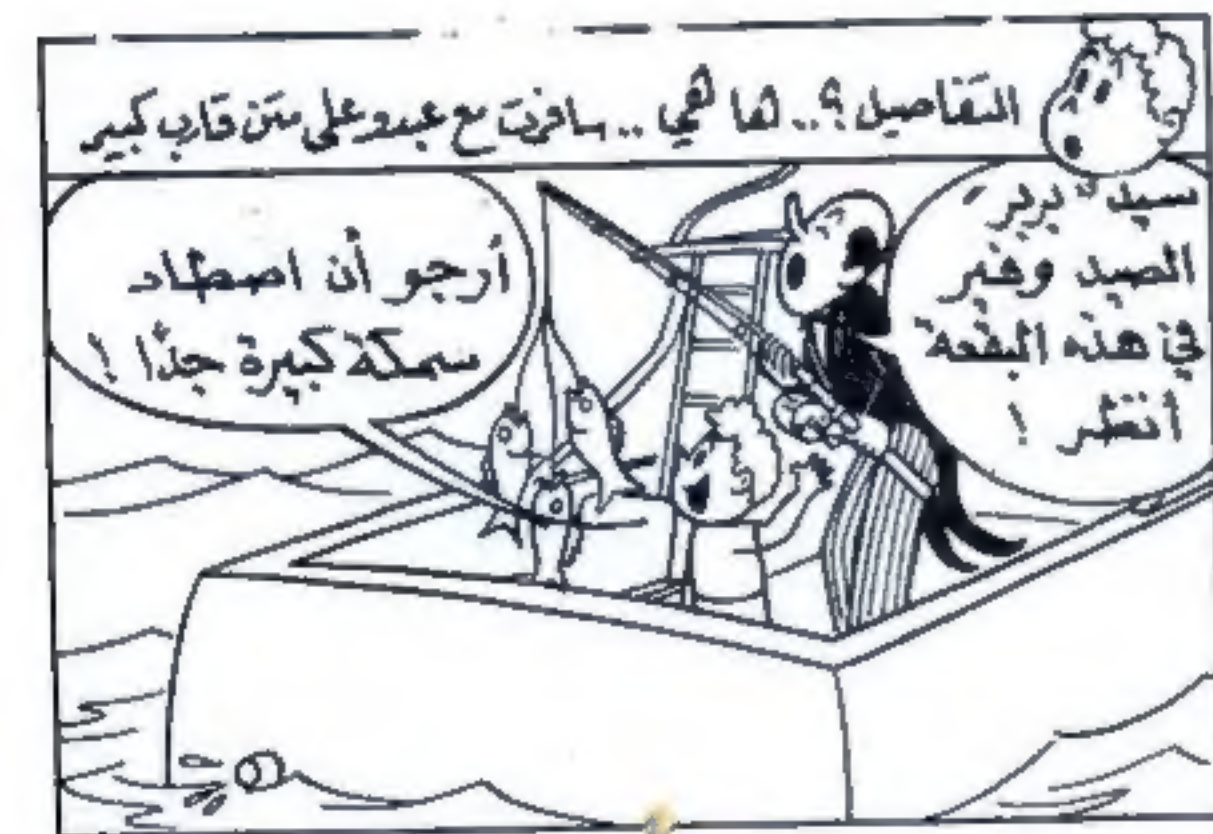 التفاصيل ؟.. ها هي .. سافرت مع عبدو على متن قارب كبير
سيد "بربر"
الصيد وفير
في هذه البقعة
انظر !
أرجو أن اصطاد
سمكة كبيرة جدًا !